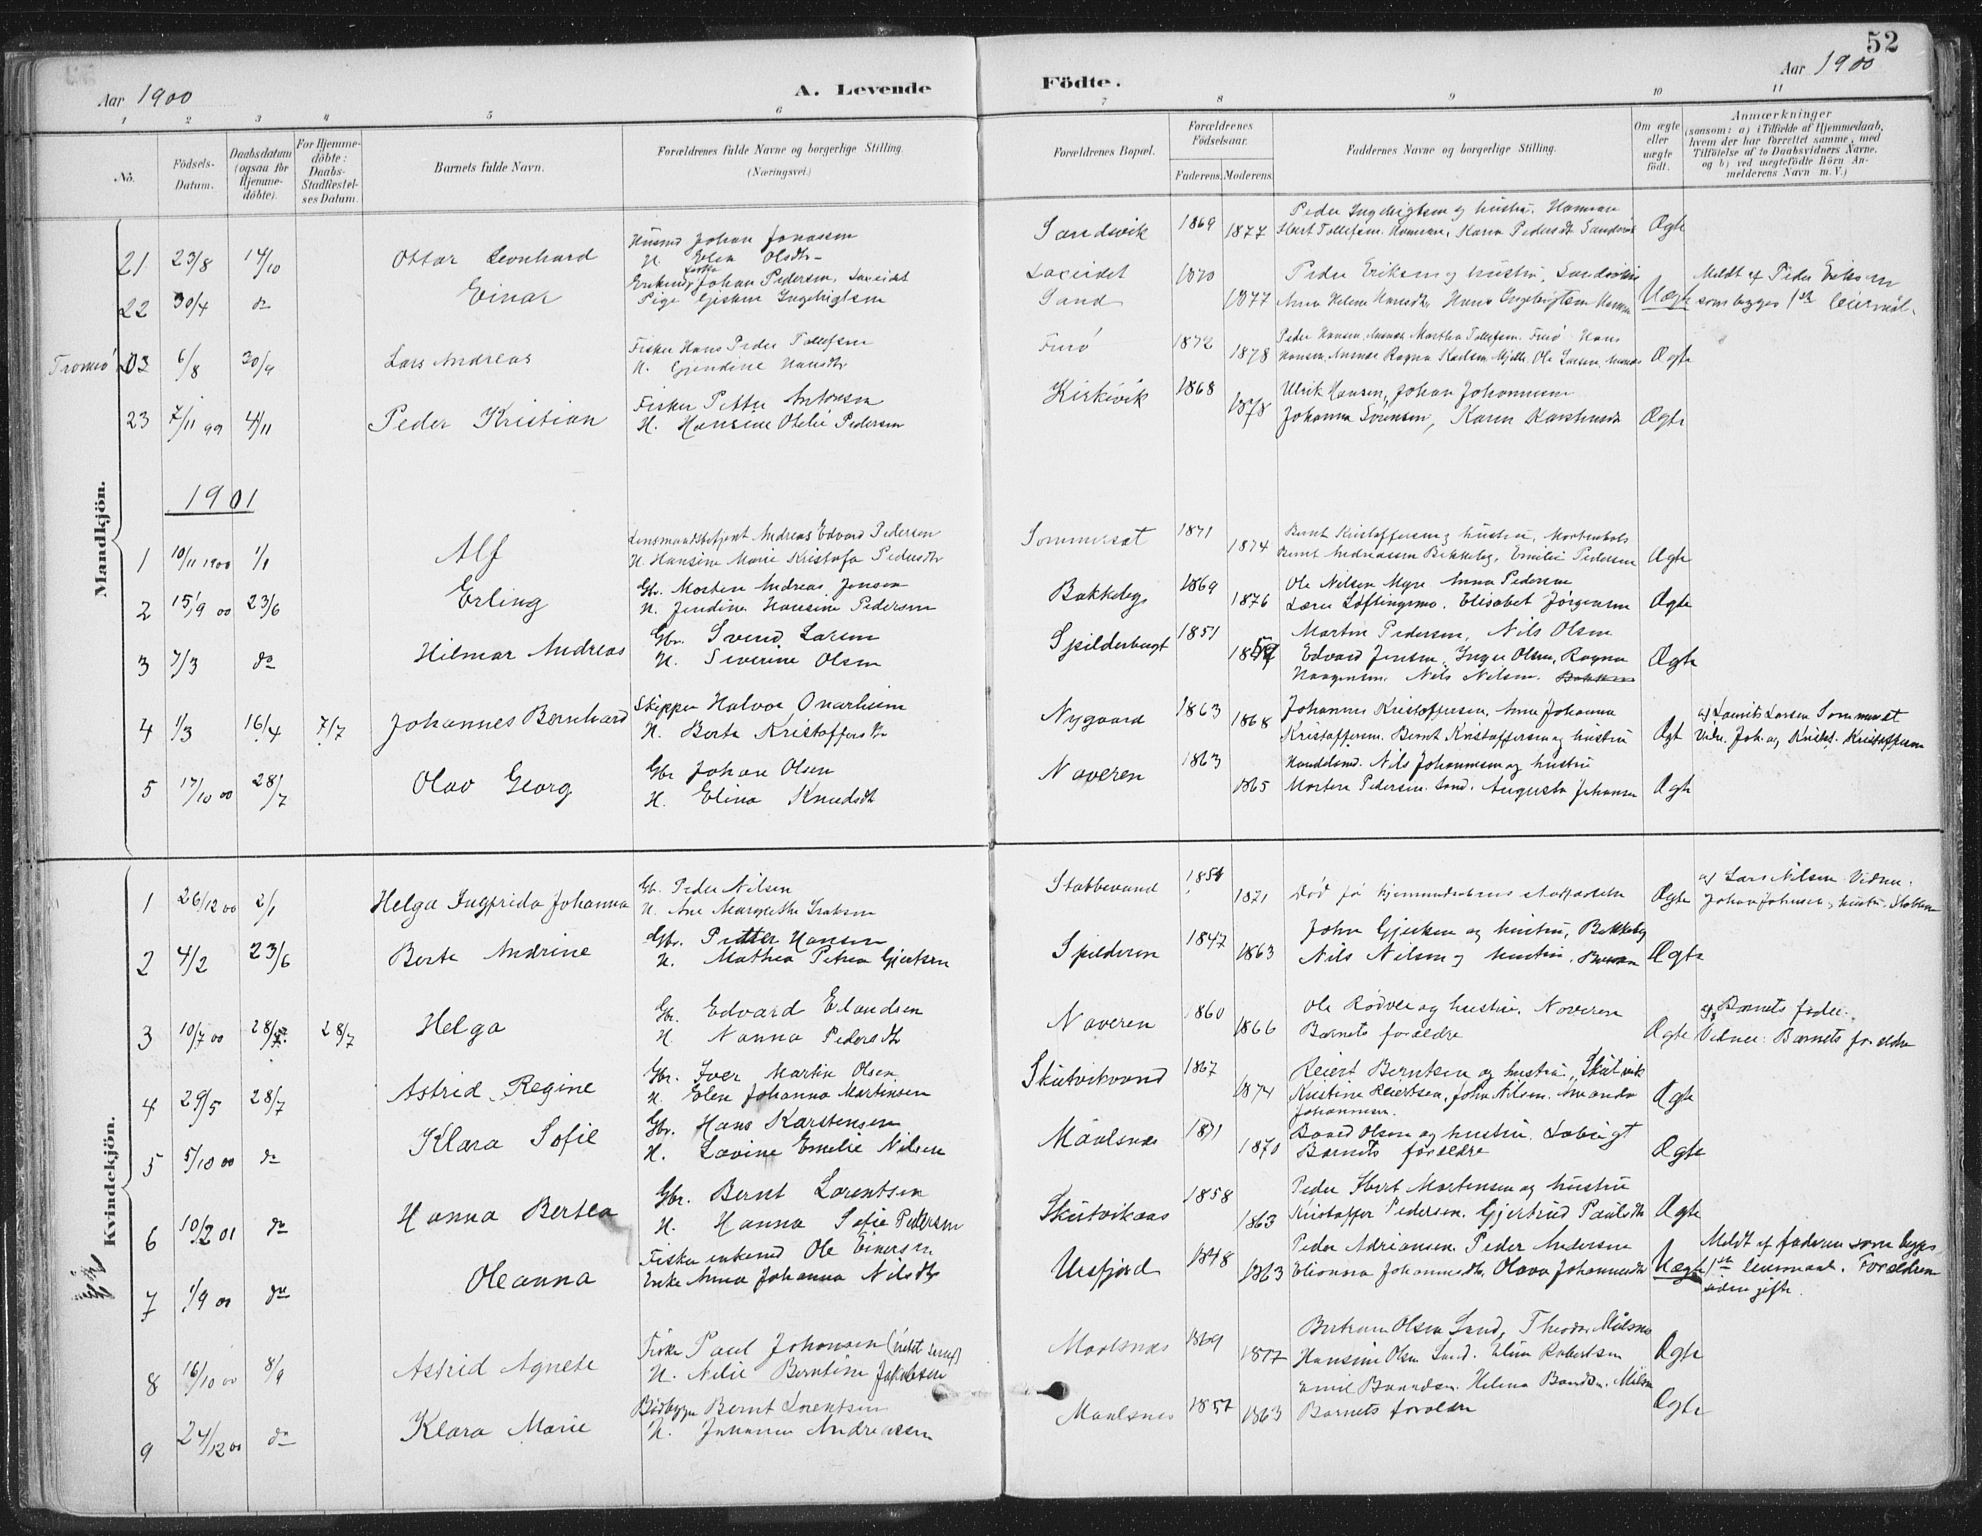 52
Aar 1900
A. Levende
Födte.
Aar 1900
1 2 3 4 5 6 7 8 9 10 11
No.
Födsels-Datum.
Daabsdatum (ogsaa for Hjemmedöbte).
For Hjemmedöbte: Daabs-Stadfæstelses Datum.
Barnets fulde Navn.
Forældrenes fulde Navne og borgerlige Stilling.
(Næringsvei.)
Forældrenes Bopæl.
Forældrenes Födselsaar.
Faderens. Moderens.
Faddernes Navne og borgerlige Stilling.
Om ægte eller uægte födt.
Anmærkninger
(saasom: a) i Tilfælde af Hjemmedaab, hvem der har forrettet samme, med Tilföielse af to Daabsvidners Navne, og b) ved uægtefödte Börn Anmelderens Navn m. V.)
Mandkjön.
21 23/8 14/10 Ottar Leonhard
Johan Jonassen
H. Elen Olsdtr
Sandvik 1869 1877
Peder Ingebrigtsen og hustru, Hamran
Tollefsen Hamran, Karen Pedersdt Sandvik
Ægte
22 30/4 do Einar
Johan Pedersen, Laxeidet
Pige Ingebrigtsen
Laxeidet
Sand
1870 1877
Peder Eriksen og hustru, Sandvik
Anna Helene Hansdtr, Hans Ingebrigtsen Hamran
Uægte
Meldt af Peder Eriksen
som begges 1ste leiermål.
Tromsö 23 6/8 30/9 Lars Andreas
Fisker Hans Peder Tollefsen
H. Grendine Hansdtr
Furö 1872 1878
Peder Hansen, Martha Tollefsen Furö Hans
Hansen, Ragna Karlsen, Ole Larsen
Ægte
23 7/11 99 4/11 Peder Kristian
Fisker Petter Antonsen
H. Hansine Otelie Pedersen
Kirkvik 1868 1878
Ulrik Hansen, Johan Johannesen
Johanna Sörensen, Karen Karstensdt
Ægte
1901
1 10/11 1900 1/1 Alf
Lensmandsbetjent Andreas Edvard Pedersen
H. Hansine Marie Kristofa Pedersdtr
Sommerset 1871 1874
Bernt Kristoffersen og hustru, Mortenhals
Bernt Andreassen Bakkeby, Emilie Pedersen
Ægte
2 15/9 00 23/6 Erling
Gbr. Morten Andreas Jensen
H. Jendine Hansine Pedersen
Bakkeby 1869 1876
Ole Nilsen Myre Anna Pedersen
Lærer Löftingsmo. Elisabet Jörgensen
Ægte
3 7/3 do Hilmar Andreas
Gbr. Svend Larsen
H. Severine Olsen
Spilderbugt 1851
Martin Pedersen, Nils Olsen
Edvard Jensen, Inger Olsen, Ragna
Haagensen. Nils Nilsen.
Ægte
4 1/3 16/4 7/7 Johannes Bernhard
Skipper Halvor Onarheim
H. Berte Kristoffersdtr
Nygaard 1863 1868
Johannes Kristoffersen, Anna Johanna
Kristoffersen. Bernt Kristoffersen og hustru
Ægt
a) Laurits Larsen Sommerset
Vidn. Joh. og Krist. Kristoffersen
5 17/10 00 28/7 Olav Georg
Gbr Johan Olsen
H. Elina Knudsdtr
Naveren 1863 1865
Handelsmd. Nils Johannesen og hustru
Morten Pedersen. Sand. Augusta Johansen
Ægte
Kvindekjön.
1 26/12 00 2/1 Helga Ingfrida Johanna
Gb. Peder Nilsen
H. Ane Margrethe Isaksen
Stabbevand 1871
Död før hjemmedaabens stadfæstelse
Ægte
a) Lars Nilsen Vidner:
Johan Johnsen og hustru, Stabben
2 4/2 23/6 Berte Andrine
Gbr. Petter Hansen
H. Mathea Petrea Gjertsen
Spilderen 1847 1863
John Gjertsen og hustru, Bakkeby
Nils Nilsen og hustru.
Ægte
3 10/7 00 28/7 28/7 Helga
Gbr. Edvard Elandsen
H. Nanna Pedersdtr
Naveren 1860 1866
Ole Rödvei og hustru, Naveren
Barnets forældre
Ægte
a) Barnets fader.
Vidner: Barnets forældre
4 29/5 28/7 Astrid Regine
Gbr. Iver Martin Olsen
H. Elen Johanna Martinsen
Skutvikvand 1867 1874
Reiert Berntsen og hustru, Skutvik
Kristine Reiertsen, John Nilsen. Amanda
Johannesen.
Ægte
5 5/10 00 do Klara Sofie
Gbr. Hans Karstensen
H. Lovine Emelie Nilsen
Maalsnes 1871 1870
Baard Olsen og hustru.
Barnets forældre
Ægte
6 10/2 01 do Hanna Bertea
Gbr. Bernt Lorentsen
H. Hanna Sofie Pedersen
Skutvikaas 1858 1863
Peder Ebert Mortensen og hustru
Kristoffer Pedersen. Gjertrud Paulsdtr
Ægte
7 1/9 00 do Oleanna
Fisker enkemd Ole Einersen
Enke Anna Johanna Nilsdtr
Ursfjord 1848 1863
Peder Adriansen. Peder Andersen
Elionna Johannesdtr, Olava Johannesdtr
Uægte
Meldt af faderen som begges
1ste leiermaal. Forældrene
siden gifte.
8 16/10 00 8/9 Astrid Agnete
Fisker Paul Johansen
H. Nelie Berntine Jakobsen
Maalsnes 1869 1877
Bertram Olsen Sand, Theodor Målsnes
Hansine Olsen Sand. Elina Robertsen
Ægte
9 24/12 00 do Klara Marie
Bödbygger Bernt Lorentsen
H. Johanna Andreassen
Maalsnes 1857 1863
Emil Baardsen. Helena Baardsen. Målsnes
Barnets forældre
Ægte